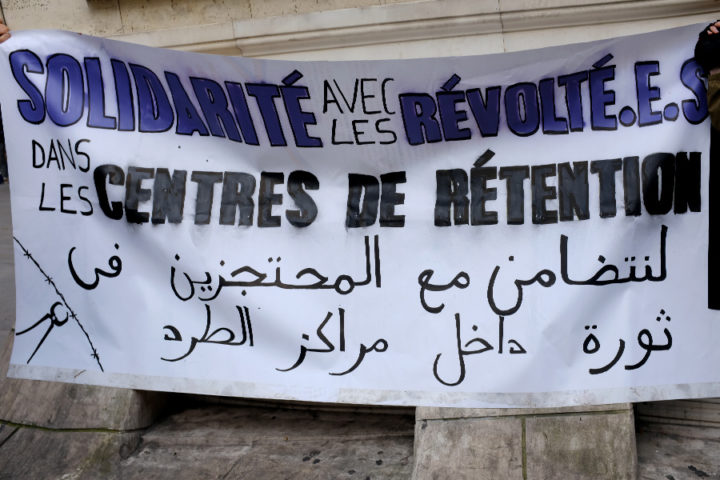 SOLIDARITÉ AVEC LES RÉVOLTÉ.E.S
DANS LES CENTRES DE RÉTENTION
لنتضامن مع المحتجزين في
ثورة داخل مراكز الطرد